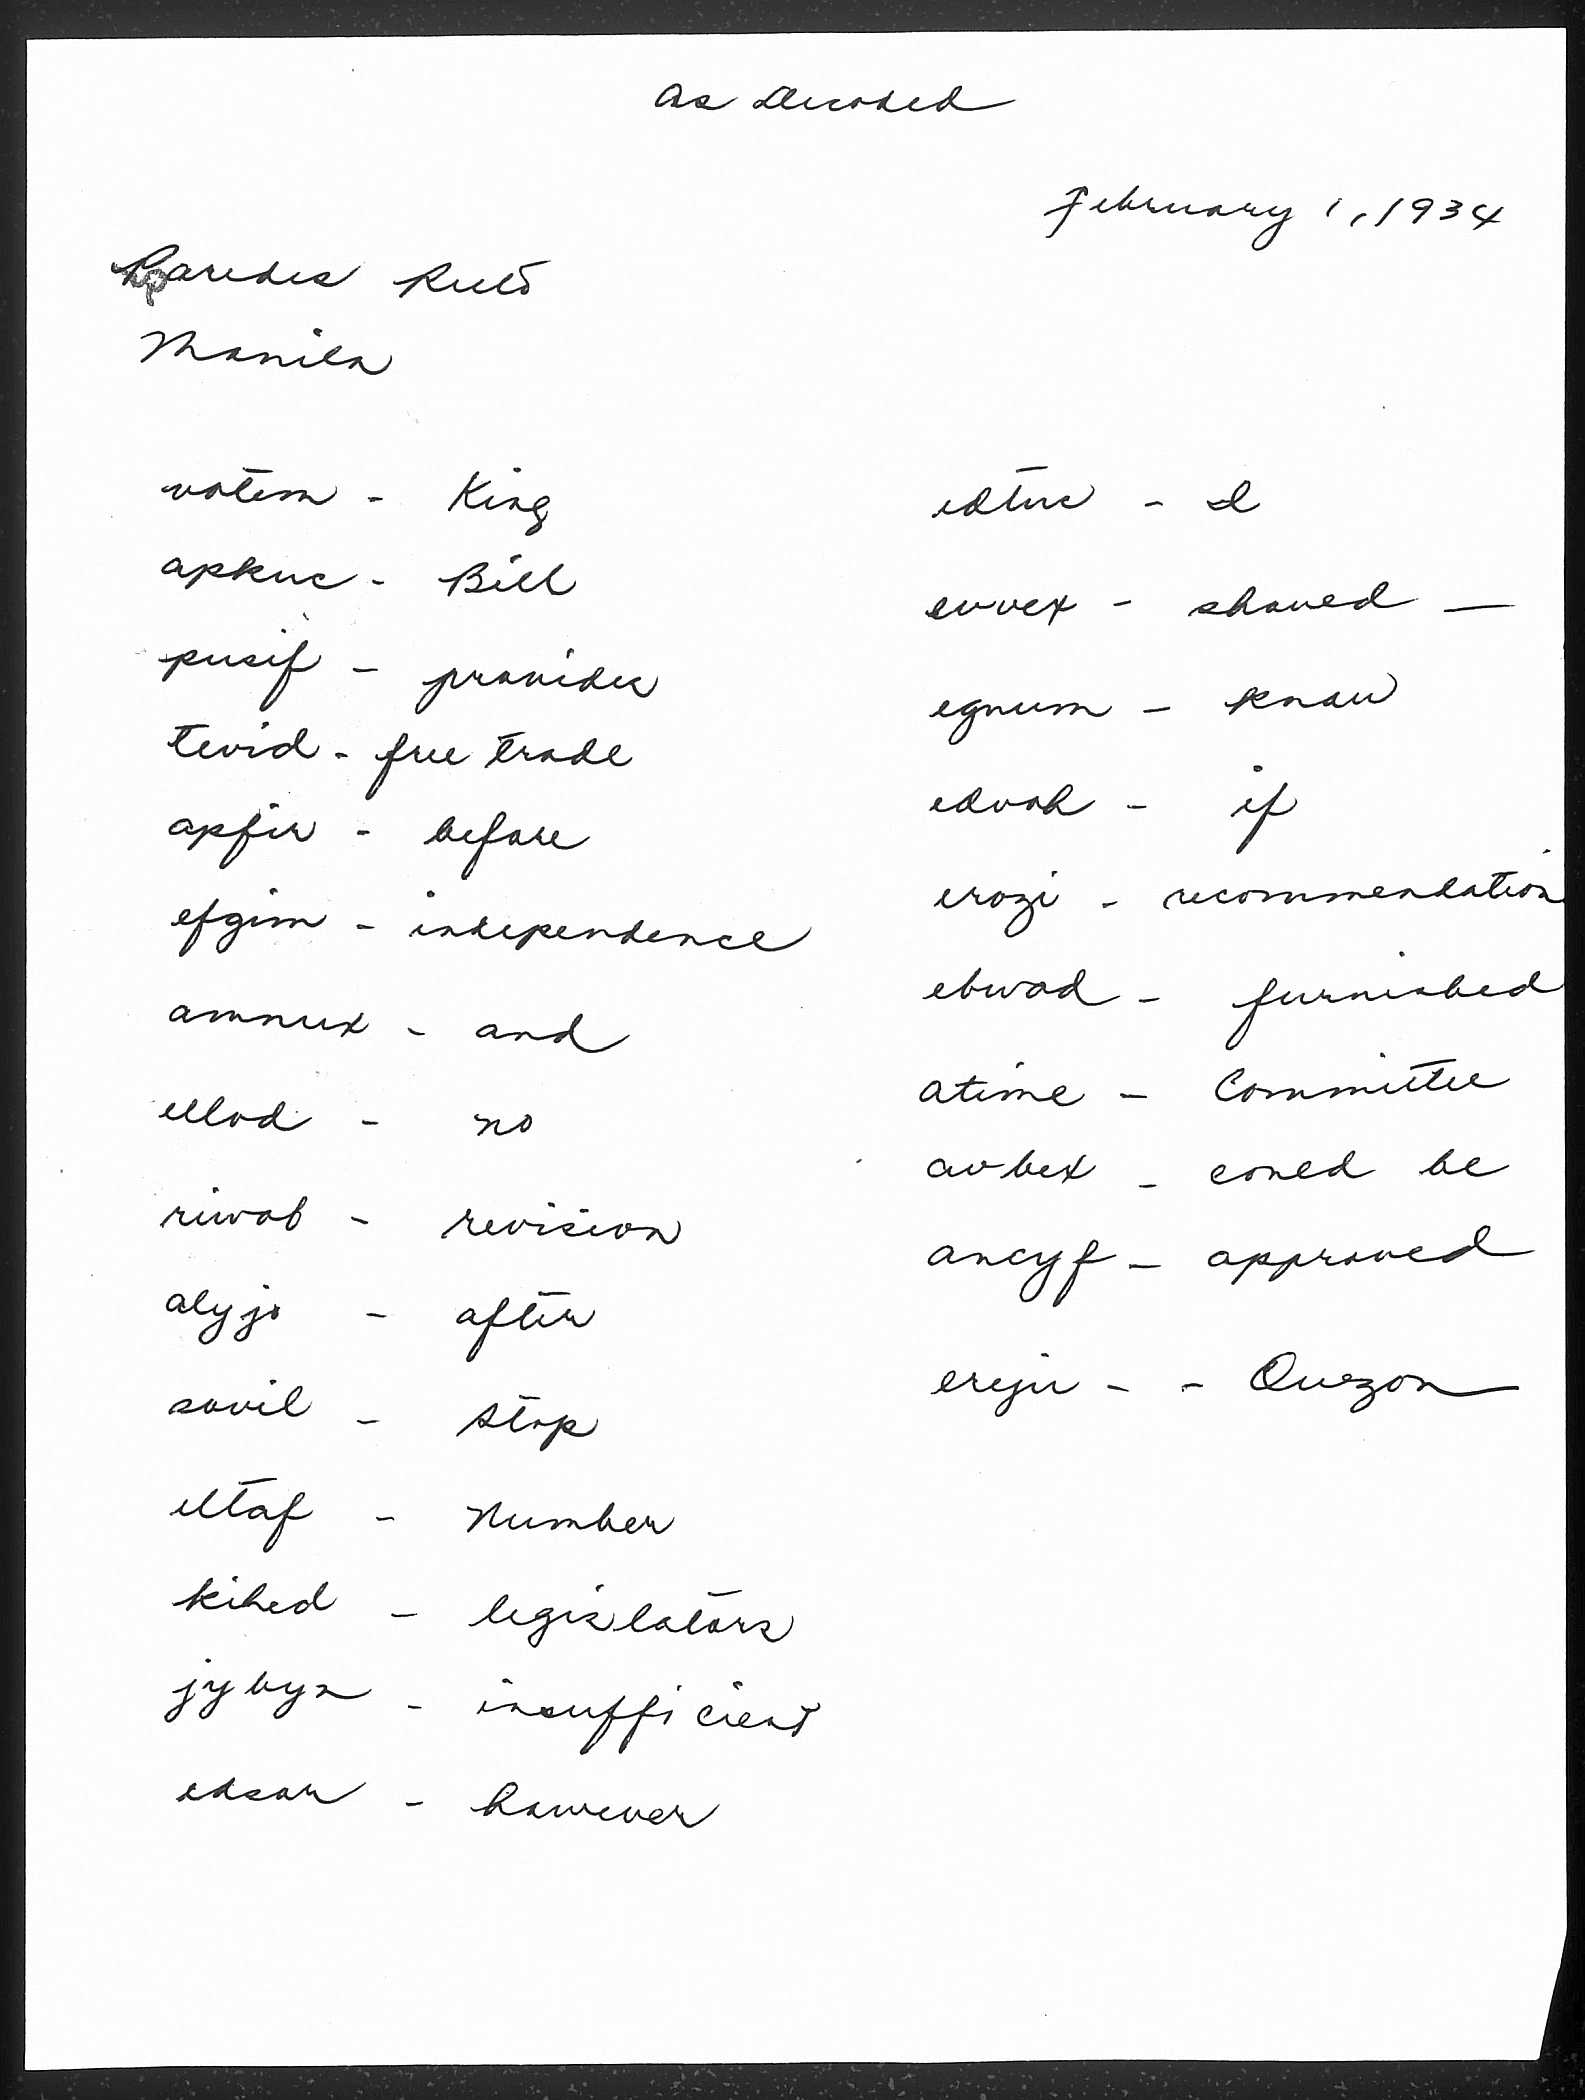 As Decoded
February 1, 1934
Paredes
Manila
votem - King
apkuc - Bill
pusif - provides
tevid - free trade
apfir - before
efgim - independence
amnux - and
ellod - no
riwob - revision
alyjo - after
sovil - stop
eltaf - Number
kihed - legislators
jybyn - insufficient
edsor - however
edtuc - I
evvex - should
egnum - know
edvoh - if
erozi - recommendation
ebwod - furnished
atime - Committee
avbex - could be
ancyf - approved
erejir - - Quezon